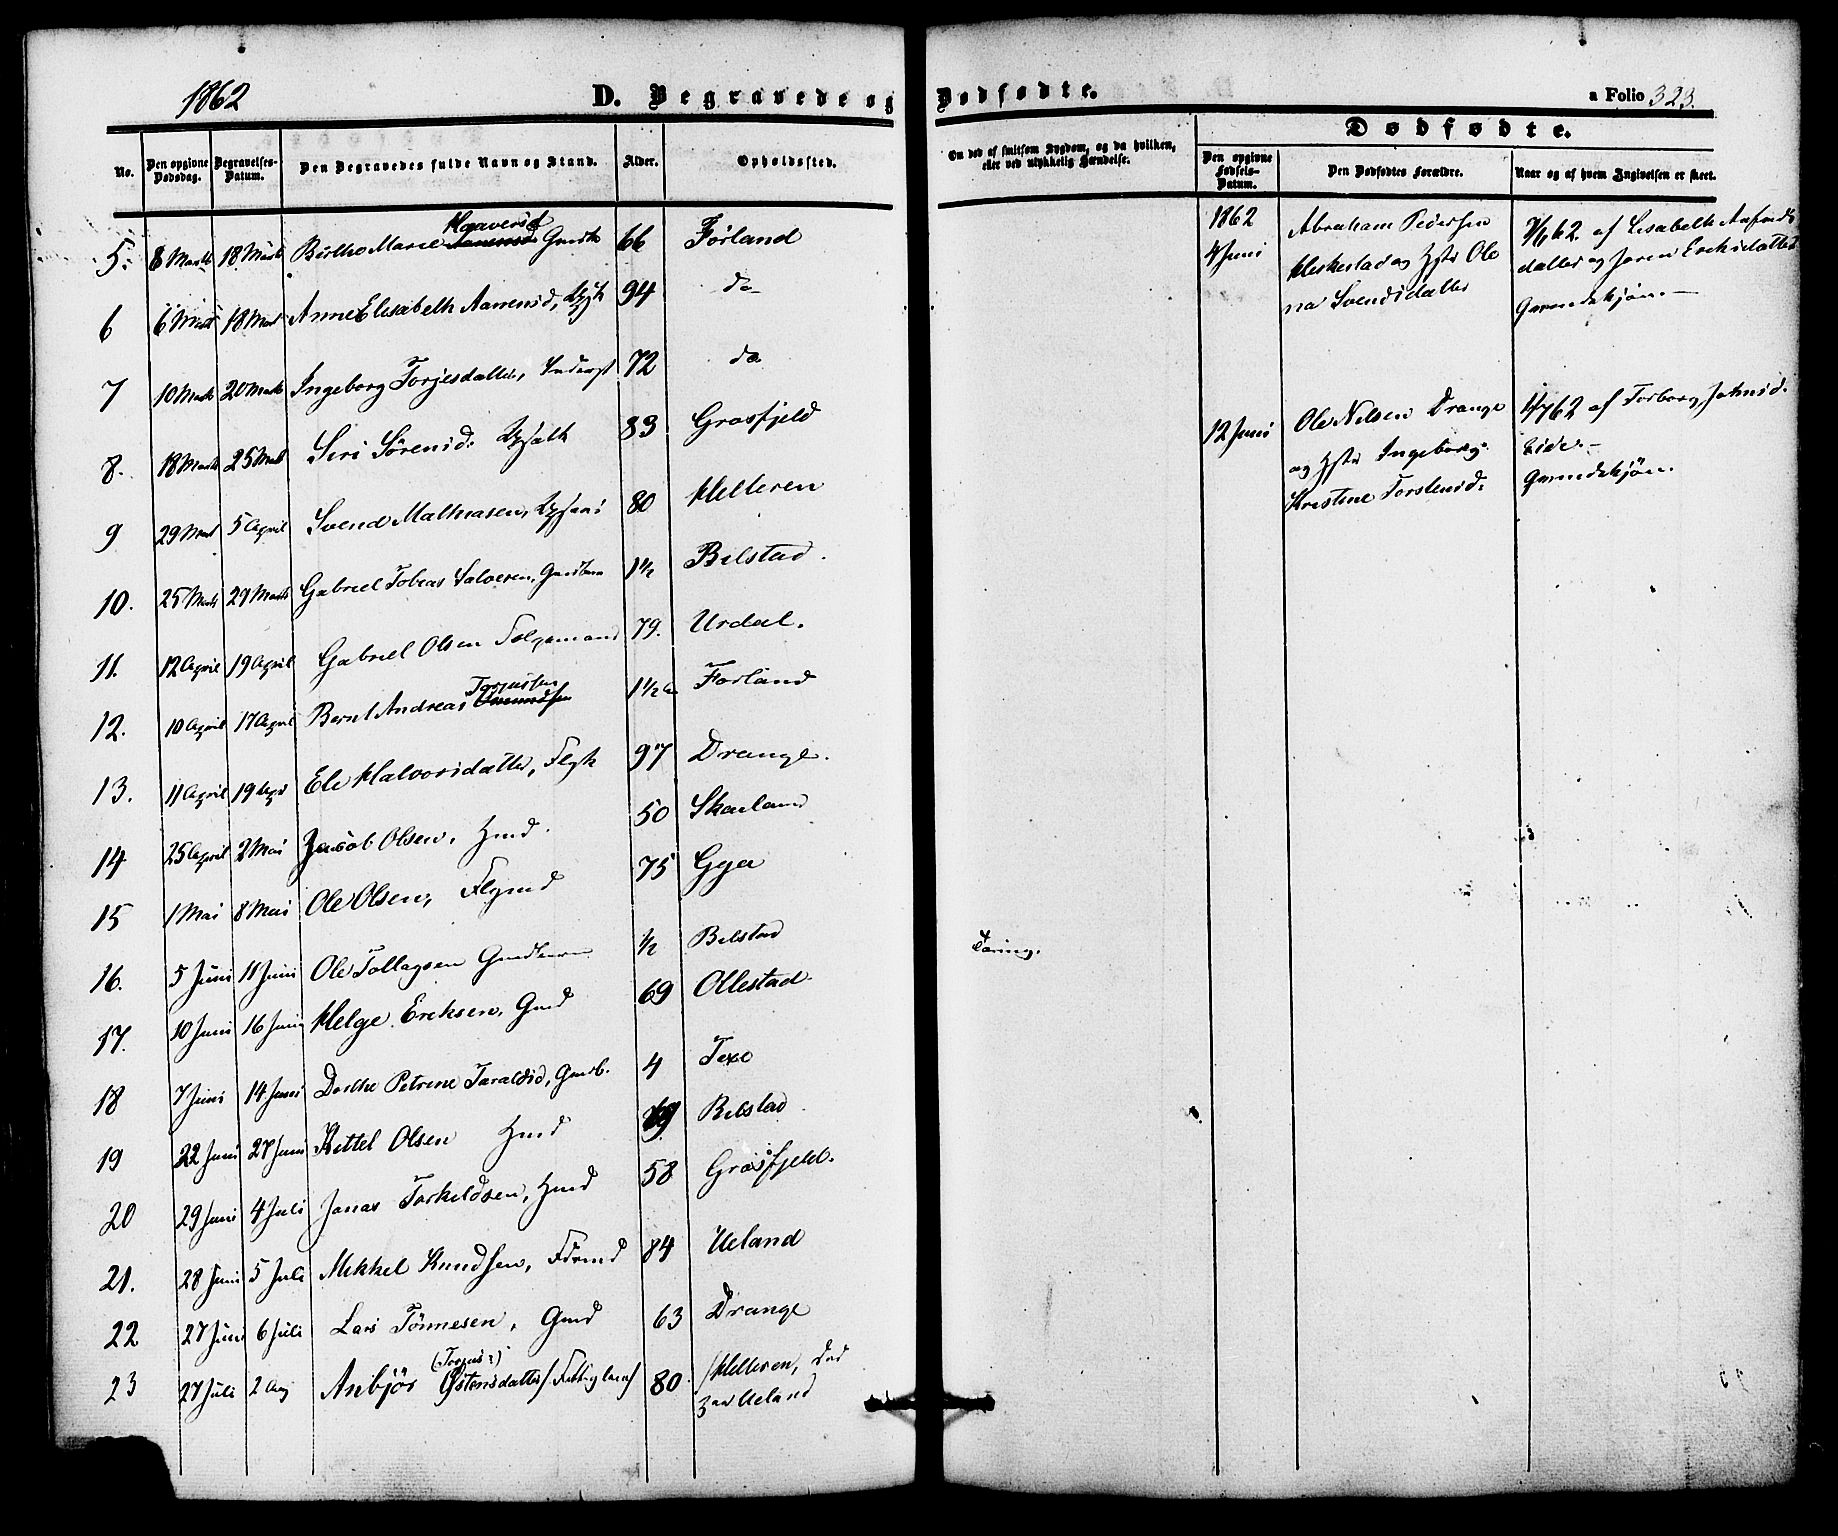 1862
D. Begravede og Dødfødte.
a Folio 323.
No.
Den opgivne Dødsdag.
Begravelses-Datum.
Den Begravedes fulde Navn og Stand.
Alder.
Opholdssted.
Om død af smitsom Sygdom, og da hvilken, eller ved ulykkelig Hændelse.
Dødfødte.
Den opgivne Fødsels-Datum.
Den Dødfødtes Forældre.
Naar og af hvem Angivelsen er skeet.
5. 8 Marts 18 Marts Birthe Marie Gmdk 66 Førland
6 6 Marts 18 Mart Anne Elisabeth Aanensd, 94 do
7 10 Marts 20 Marts Ingeborg Torjesdatter, Inderst 72 do
8. 18 Marts 25 Mart Siri Sørensd: 83 Grøsfjeld
9 29 Mart 5 April Svend Mathiasen, 80 Helleren
10. 25 Marts 29 Marts Gabriel Tobias Salvesen, Gmdbarn 1½ Bilstad.
11. 12 April 19 April Gabriel Olsen Folgemand 79. Urdal.
Torjussen
12. 10 April 17 April Bernt Andreas 1½ Førland
13. 11 April 19 Apr Eli Halvorsdatter, Flgk 97 Drange.
14 25 April 2 Mai Jacob Olsen, Hmd. 50 Skarland
15 1 Mai 8 Mai Ole Olsen, Flgmd 75 Gya
16. 5 Juni 11 Juni Ole Tollagsen Gmdbarn ½ Bilstad Tæring.
17. 10 Juni 16 Juni Helge Eriksen, Gmd 69 Ollestad
18 7 Juni 14 Juni Dorthe Petrine Taraldsd, Gmdb. 4 Texe
19 22 Juni 27 Juni Kittel Olsen Hmd Bilstad
20 29 Juni 4 Juli Jonas Torkeldsen, Hmd 58 Grøsfjeld.
21. 28 Juni 5 Juli Mikkel Knudsen, 84 Ueland
22 27 Juni 6 Juli Lars Tønnesen, Gmd 63 Drange
23 27 Juli 2 Aug Anbjør Østensdatter 80 Helleren, død
paa Ueland
1862
4 Juni
Abraham Pedersen
Heskestad og Hstr Ole
na Svendsdatter
af Lisabeth
datter og Joren Eriksdatter
Qvindekjøn.—
12 Juni
Ole Nilsen Drange
og Hstr Ingeborg
Kristine Torstensd:
62 af Torborg Johnsd.
Eide.—
Qvindekjøn.